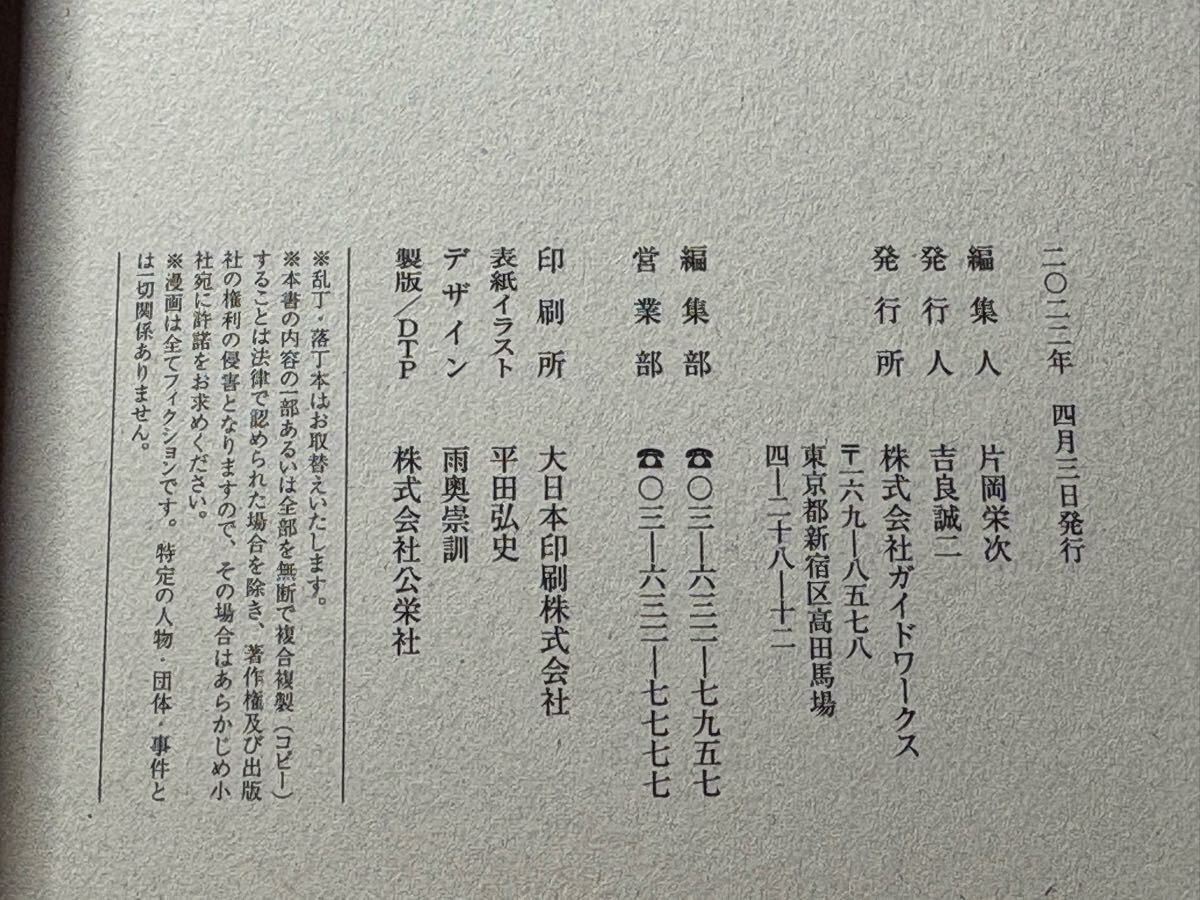 二〇二二年　四月三日発行
編集人　片岡栄次
発行人　吉良誠二
発行所　株式会社ガイドワークス
〒一六九―八五七八
東京都新宿区高田馬場
四―二十八―十二
編集部　☎〇三―六三一一―七九五七
営業部　☎〇三―六三一一―七七七七
印刷所　大日本印刷株式会社
表紙イラスト　平田弘史
デザイン　雨奥崇訓
製版／DTP　株式会社公栄社
※乱丁・落丁本はお取替えいたします。
※本書の内容の一部あるいは全部を無断で複合複製（コピー）
することは法律で認められた場合を除き、著作権及び出版
社の権利の侵害となりますので、その場合はあらかじめ小
社宛に許諾をお求めください。
※漫画は全てフィクションです。特定の人物・団体・事件と
は一切関係ありません。